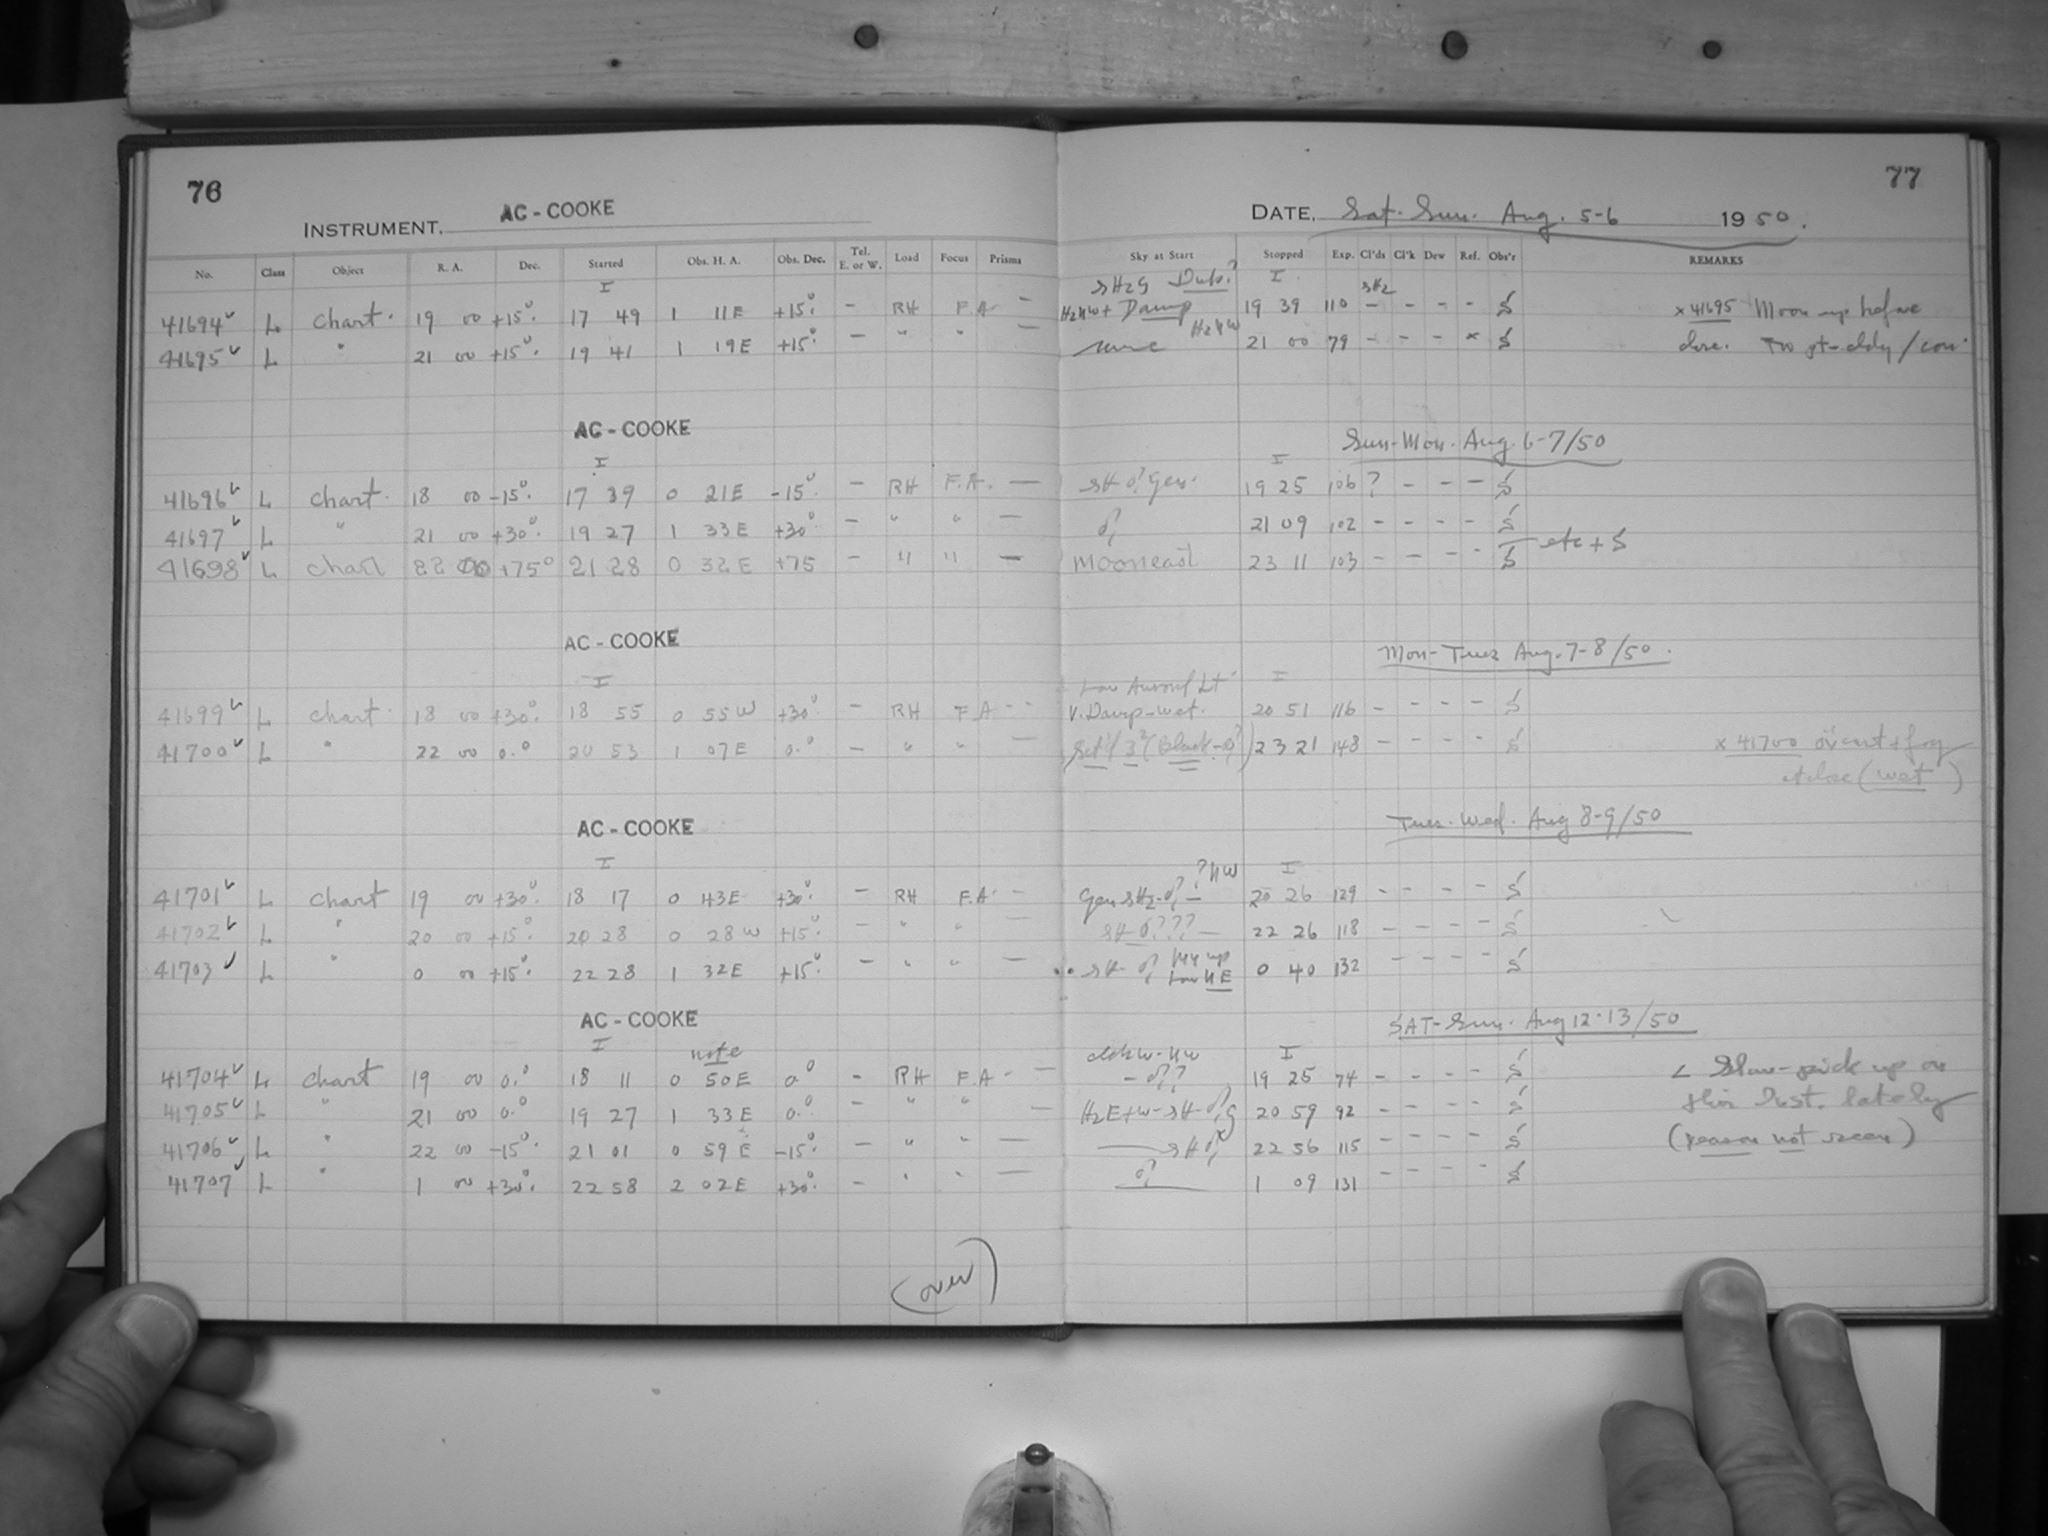 76 77
INSTRUMENT, AC - COOKE DATE, Sat - Sun. Aug. 5-6 1950.
No. Class Object R. A. Dec. Started Obs. H. A. Obs. Dec. Tel. E. or W. Load Focus Prisms Sky at Start Stopped Exp. Cl'ds Cl'k Dew Ref. Obs'r REMARKS
41694 L chart. 19 00 +15°. 17 49 1 11E +15°. - RH F.A. - H2NW+ Damp 19 39 110 - - - - S x 41695 Moon up before
41695 L " 21 00 +15°. 19 41 1 19E +15°. - " " - 21 00 79 - - - x S close.
AC - COOKE Sun-Mon. Aug. 6-7/50
41696 L chart. 18 00 -15°. 17 39 0 21E -15°. - RH F.A. - 19 25 106 ? - - - S
41697 L " 21 00 +30°. 19 27 1 33E +30° - " " - 21 09 102 - - - - S
41698 L chart 22 00 +75° 21 28 0 32E +75 - " " - Moon east 23 11 103 - - - - S etc + S
AC - COOKE Mon-Tues Aug. 7-8/50.
41699 L chart. 18 00 +30°. 18 55 0 55W +30°. - RH F.A - - V. Damp-wet. 20 51 116 - - - - S
41700 L " 22 00 0.° 20 53 1 07E 0.° - " " - 23 21 148 - - - - S x 41700 + fog
at close (wet)
AC - COOKE Tues. Wed. Aug 8-9/50
41701 L chart 19 00 +30°. 18 17 0 43E +30°. - RH F.A. - 20 26 129 - - - - S
41702 L " 20 00 +15°. 20 28 0 28W +15°. - " " - 22 26 118 - - - - S
41703 L " 0 00 +15°. 22 28 1 32E +15°. - " " - 0 40 132 - - - - S
AC - COOKE SAT-Sun. Aug 12-13/50
note
41704 L chart 19 00 0.° 18 11 0 50E 0.° - RH F.A - - 19 25 74 - - - - S Slow-pick up on
41705 L " 21 00 0.° 19 27 1 33E 0.° - " " - 20 59 92 - - - - S this Inst. lately
41706 L " 22 00 -15°. 21 01 0 59E -15°. - " " - 22 56 115 - - - - S (reason not seen)
41707 L " 1 00 +30°. 22 58 2 02E +30°. - " " - 1 09 131 - - - - S
(over)